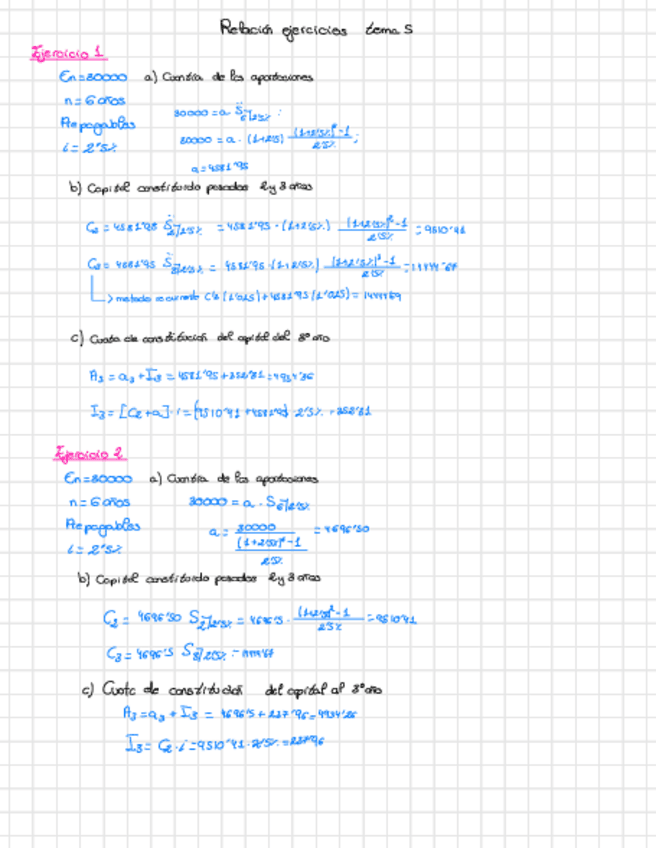 Relación ejercicios tema 5
Ejercicio 1
Cn=30000 a) Cuantía de las aportaciones
n=6 años
Prepagables
i=2'5%
30000=a S̈6⌉2'5% :
30000=a·(1+2'5%) (1+2'5%)⁶-1 / 2'5% ;
a=4581'95
b) Capital constituido pasados 2 y 3 años
C₂=4581'95 S̈2⌉2'5% =4581'95·(1+2'5%) (1+2'5%)²-1 / 2'5% =9510'41
C₃=4581'95 S̈3⌉2'5% = 4581'95·(1+2'5%) (1+2'5%)³-1 / 2'5% =
método recurrente C₂(1'025)+4581'95(1'025)=
c) Cuota de constitución del capital del 3º año
A₃=a₃+I₃=4581'95+352'31=4934'26
I₃=[C₂+a]·i=[9510'41+4581'95]·2'5%=352'31
Ejercicio 2
Cn=30000 a) Cuantía de las aportaciones
n=6 años
30000=a·S6⌉2'5%
i=2'5%
a= 30000 / (1+2'5%)⁶-1 / 2'5% =4696'50
b) Capital constituido pasados 2 y 3 años
C₂= 4696'50 S2⌉2'5% =4696'5· (1+2'5%)²-1 / 2'5% =9510'41
C₃=4696'5 S3⌉2'5% =
c) Cuota de constitución del capital al 3º año
A₃=a₃+I₃ = 4696'5+237'76=4934'26
I₃= C₂·i=9510'41·2'5%=